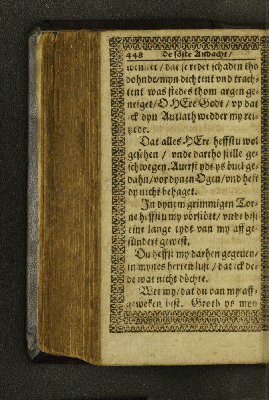 448 De söste Andacht/
wennet / dat se redet schaden tho
dohnde/ myn dich tent vnd trach-
tent was siedes thom argen ge-
neiget/ O HEre Godt / vp dat
ick dyn Antlath wedder my rei-
zede.
Dat alles HEre heffstu wol
gesehen / vnde dartho stille ge-
schwegen. Auerst ydt ys öuel ge-
dahn/ vor dynen Ogen/ vnd hefft
dy nicht behaget.
In dynem grimmigen Tor-
ne heffstu my vorstött/ vnde bist
eine lange tydt van my affge-
sündert gewest.
Du heffst my darhen gegeuen
in mynes herten lust / dat ick de-
de wat nicht döchte.
Wee my/ dat du van my aff-
geweken bist. Groth ys myn